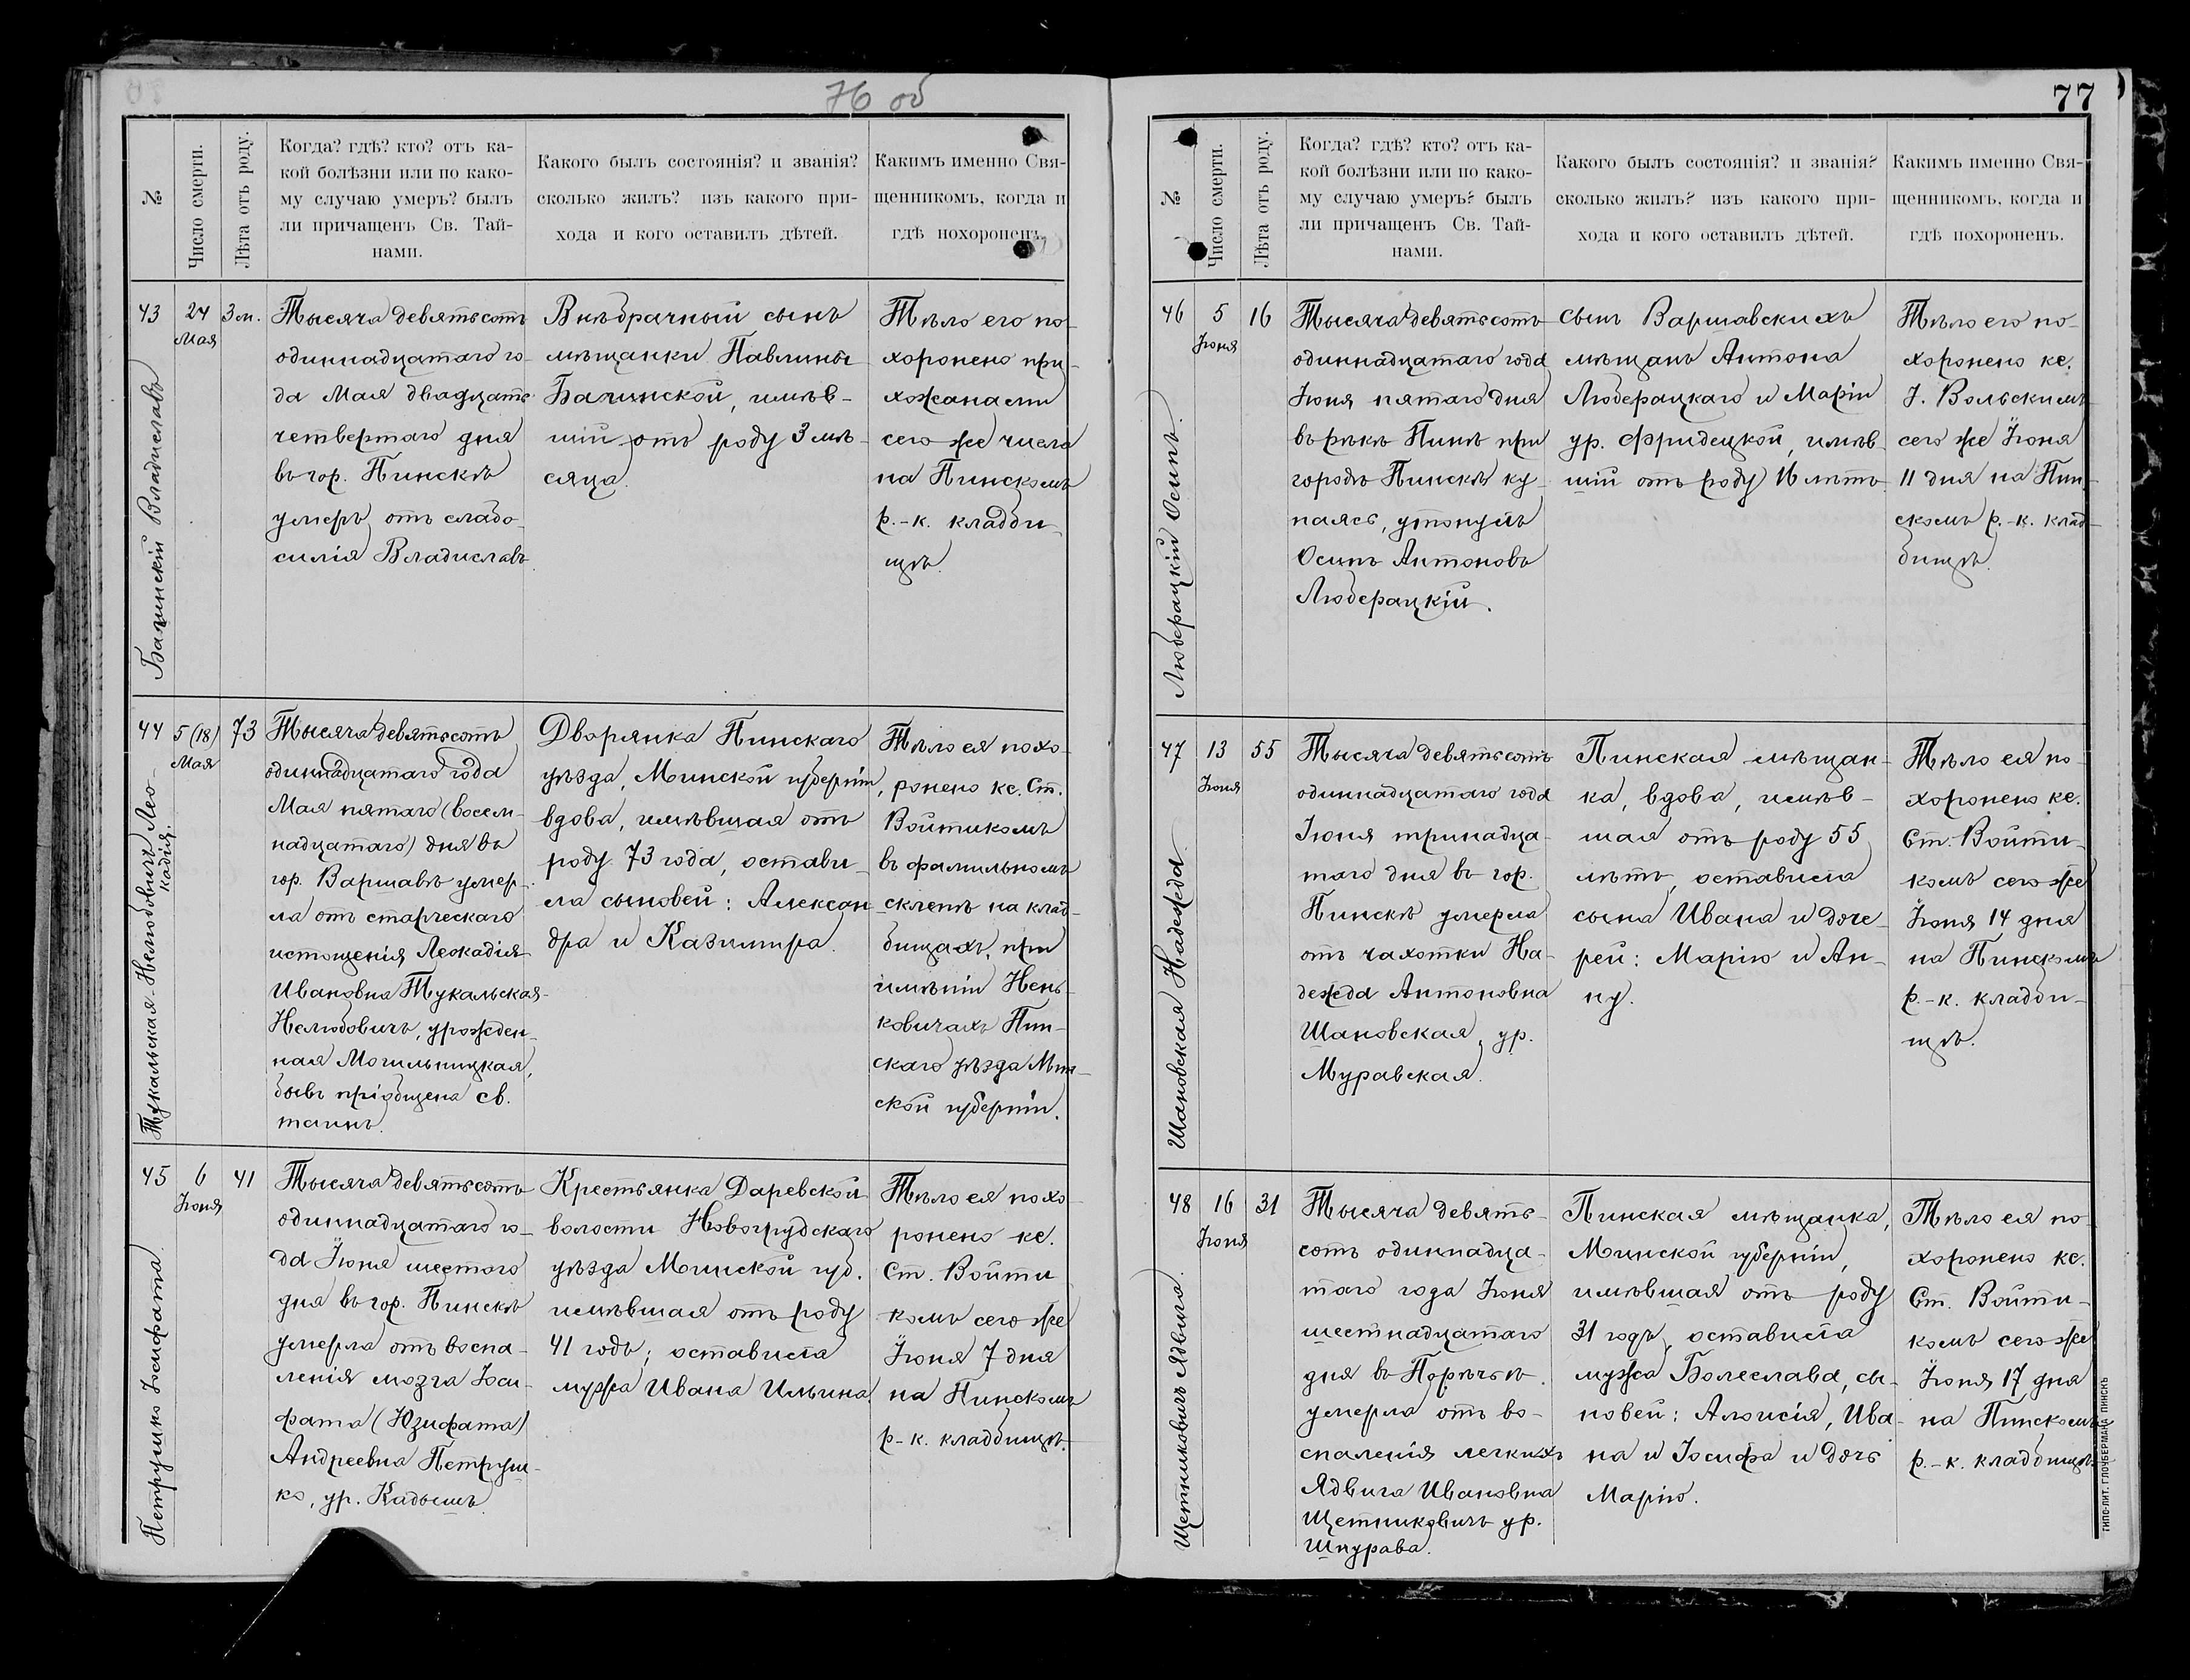 76 об
№
Число смерти.
Лѣта отъ роду.
Когда? гдѣ? кто? отъ ка-
кой болѣзни или по како-
му случаю умеръ? былъ
ли причащенъ Св. Тай-
нами.
Какого былъ состоянія? и званія?
сколько жилъ? изъ какого при-
хода и кого оставилъ дѣтей.
Какимъ именно Свя-
щенникомъ, когда и
гдѣ похороненъ.
43
24
Мая
3 м.
Бачинскій Владиславъ
Тысяча девятьсотъ
одиннадцатаго го-
да Мая двадцать
четвертаго дня
въ гор. Пинскѣ
умеръ отъ слабо-
силія Владиславъ.
Внѣбрачный сынъ
мѣщанки Павлины
Бачинской, имѣв-
шій отъ роду 3 мѣ-
сяца.
Тѣло его по-
хоронено при-
хожанами
сего же числа
на Пинскомъ
р.-к. кладби-
щѣ.
44
5 (18)
Мая
73
Тукальская-Нелюбовичъ Лео-
кадія.
Тысяча девятьсотъ
одиннадцатаго года
Мая пятаго (восем-
надцатаго) дня въ
гор. Варшавѣ умер-
ла отъ старческаго
истощенія Леокадія
Ивановна Тукальская-
Нелюбовичъ, урожден-
ная Могильницкая,
бывъ пріобщена св.
таинъ.
Дворянка Пинскаго
уѣзда, Минской губерніи,
вдова, имѣвшая отъ
роду 73 года, остави-
ла сыновей: Алексан-
дра и Казимира.
Тѣло ея похо-
ронено кс. Ст.
Войтикомъ
въ фамильномъ
склепѣ на клад-
бищахъ, при
имѣніи Нень-
ковичахъ Пин-
скаго уѣзда Мин-
ской губерніи.
45
6
Іюня
41
Петрушко Іосифата.
Тысяча девятьсотъ
одиннадцатаго го-
да Іюня шестого
дня въ гор. Пинскѣ
умерла отъ воспа-
ленія мозга Іоси-
фата (Юзифата)
Андреевна Петруш-
ко, ур. Кадышъ.
Крестьянка Даревской
волости Новогрудскаго
уѣзда Минской губ.
имѣвшая отъ роду
41 годъ; оставила
мужа Ивана Ильина.
Тѣло ея похо-
ронено кс.
Ст. Войти
комъ сего же
Іюня 7 дня
на Пинскомъ
р.-к. кладбищѣ.
77
№
Число смерти.
Лѣта отъ роду.
Когда? гдѣ? кто? отъ ка-
кой болѣзни или по како-
му случаю умеръ? былъ
ли причащенъ Св. Тай-
нами.
Какого былъ состоянія? и званія?
сколько жилъ? изъ какого при-
хода и кого оставилъ дѣтей.
Какимъ именно Свя-
щенникомъ, когда и
гдѣ похороненъ.
46
5
Іюня
16
Люберацкій Осипъ.
Тысяча девятьсотъ
одиннадцатаго года
Іюня пятаго дня
въ рѣкѣ Пинѣ при
городѣ Пинскѣ ку-
паясь, утонулъ
Осипъ Антоновъ
Люберацкій.
сынъ Варшавскихъ
мѣщанъ Антона
Люберацкаго и Маріи
ур. Фридецкой, имѣв-
шій отъ роду 16 лѣтъ.
Тѣло его по-
хоронено кс.
J. Вольскимъ
сего же Іюня
11 дня на Пин-
скомъ р.-к. клад-
бищѣ.
47
13
Іюня
55
Шановская Надежда.
Тысяча девятьсотъ
одиннадцатаго года
Іюня тринадца-
таго дня въ гор.
Пинскѣ умерла
отъ чахотки На-
дежда Антоновна
Шановская, ур.
Муравская.
Пинская мѣщан-
ка, вдова, имѣв-
шая отъ роду 55
лѣтъ, оставила
сына Ивана и доче-
рей: Марію и Ан-
ну.
Тѣло ея по-
хоронено кс.
Ст. Войти-
комъ сего же
Іюня 14 дня
на Пинскомъ
р.-к. кладби-
щѣ.
48
16
Іюня
31
Щетниковичъ Ядвига.
Тысяча девять-
сотъ одиннадца-
таго года Іюня
шестнадцатаго
дня въ Порѣчьѣ
умерла отъ во-
спаленія легкихъ
Ядвига Ивановна
Щетниковичъ ур.
Шпурава.
Пинская мѣщанка,
Минской губерніи,
имѣвшая отъ роду
31 годъ, оставила
мужа Болеслава, сы-
новей: Алоисія, Ива-
на и Іосифа и дочь
Марію.
Тѣло ея по-
хоронено кс.
Ст. Войти-
комъ сего же
Іюня 17 дня
на Пинскомъ
р.-к. кладбищѣ.
ТИПО-ЛИТ. ГЛОУБЕРМАНА ПИНСКЪ